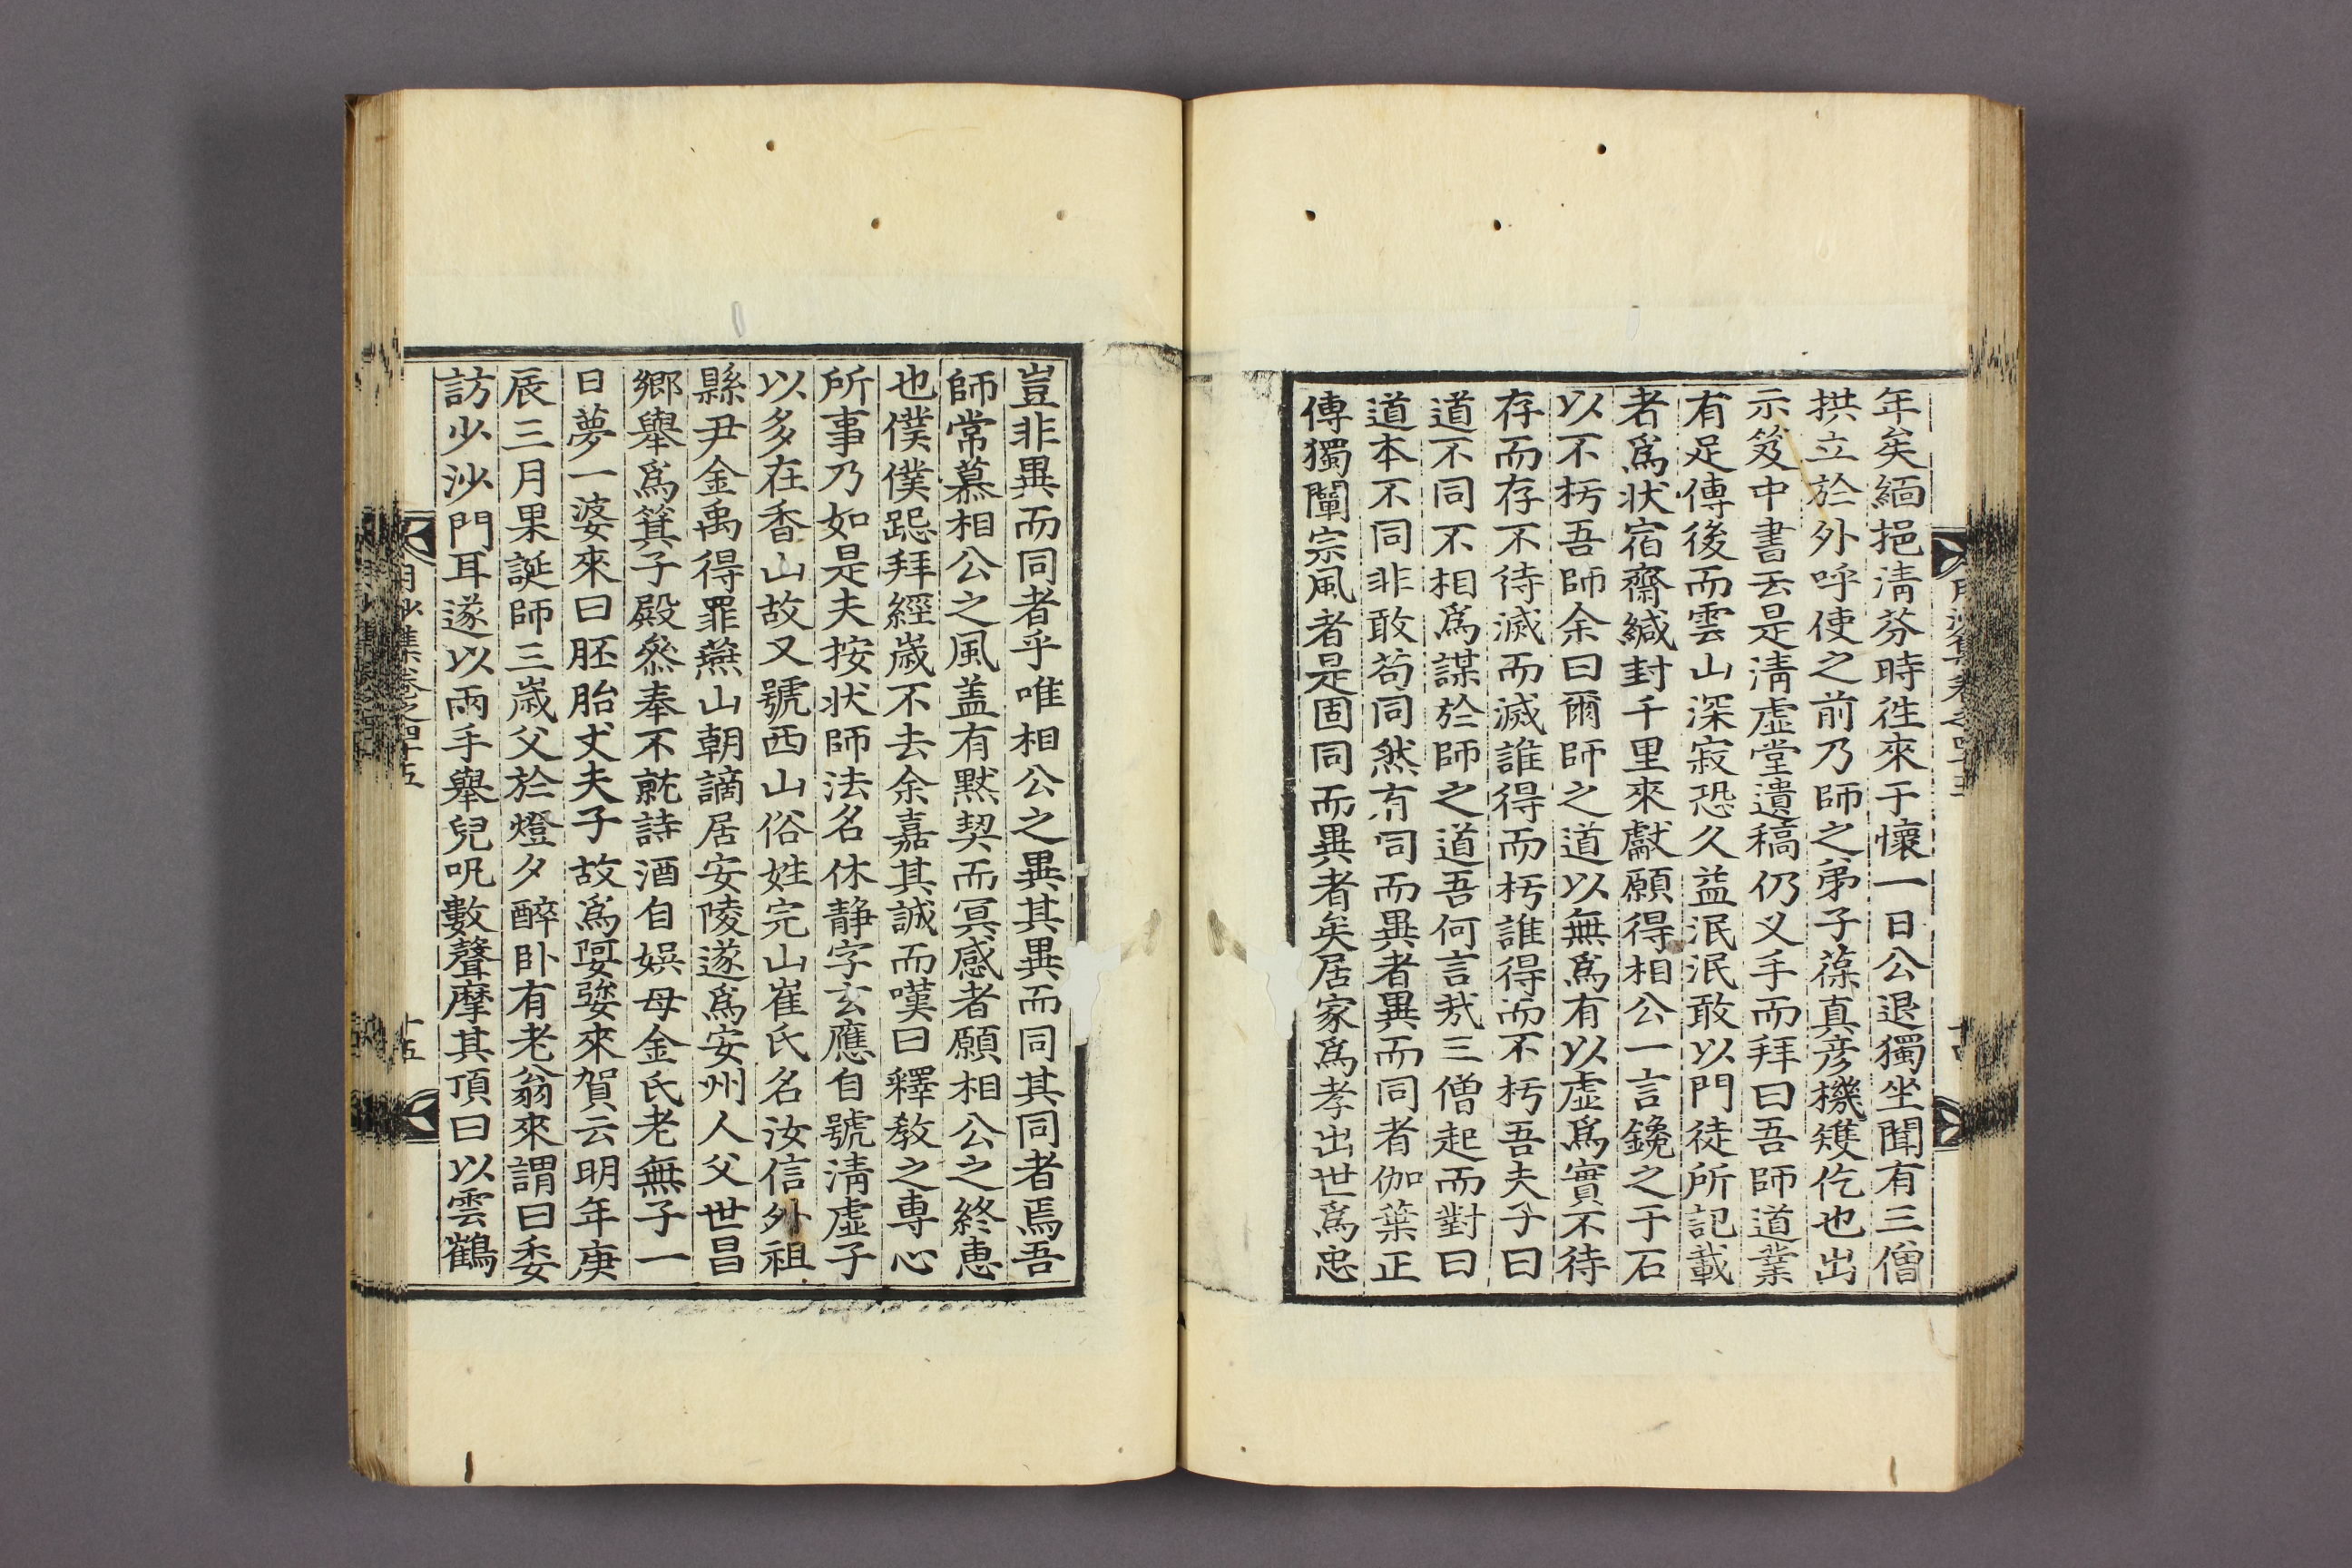 年矣緬挹淸芬時徃來于懷一日公退獨坐聞有三僧
拱立於外呼使之前乃師之弟子葆真彦機雙仡也出
示笈中書云是淸虛堂遺稿仍叉手而拜曰吾師道業
有足傳後而雲山深寂恐久益泯泯敢以門徒所記載
者爲状宿齋緘封千里來獻願得相公一言鑱之于石
以不朽吾師余曰爾師之道以無爲有以虛爲實不待
存而存不待滅而滅誰得而朽誰得而不朽吾夫子曰
道不同不相爲謀於師之道吾何言㦲三僧起而對曰
道本不同非敢苟同然有同而異者異而同者伽葉正
傳獨闡宗風者是固同而異者矣居家爲孝出世爲忠
豈非異而同者乎唯相公之異其異而同其同者焉吾
師常慕相公之風盖有黙契而冥感者願相公之終惠
也僕僕跽拜經歲不去余嘉其誠而嘆曰釋敎之專心
所事乃如是夫按状師法名休静字玄應自號淸虛子
以多在香山故又號西山俗姓完山崔氏名汝信外祖
縣尹金禹得罪燕山朝謫居安陵遂爲安州人父世昌
鄕舉爲箕子殿叅奉不就詩酒自娯母金氏老無子一
日夢一婆來曰胚胎丈夫子故爲㛪婆來賀云明年庚
辰三月果誕師三歲父於燈夕醉卧有老翁來謂曰委
訪少沙門耳遂以兩手舉兒呪數聲摩其頂曰以雲鶴
月沙集卷之四十五
十五